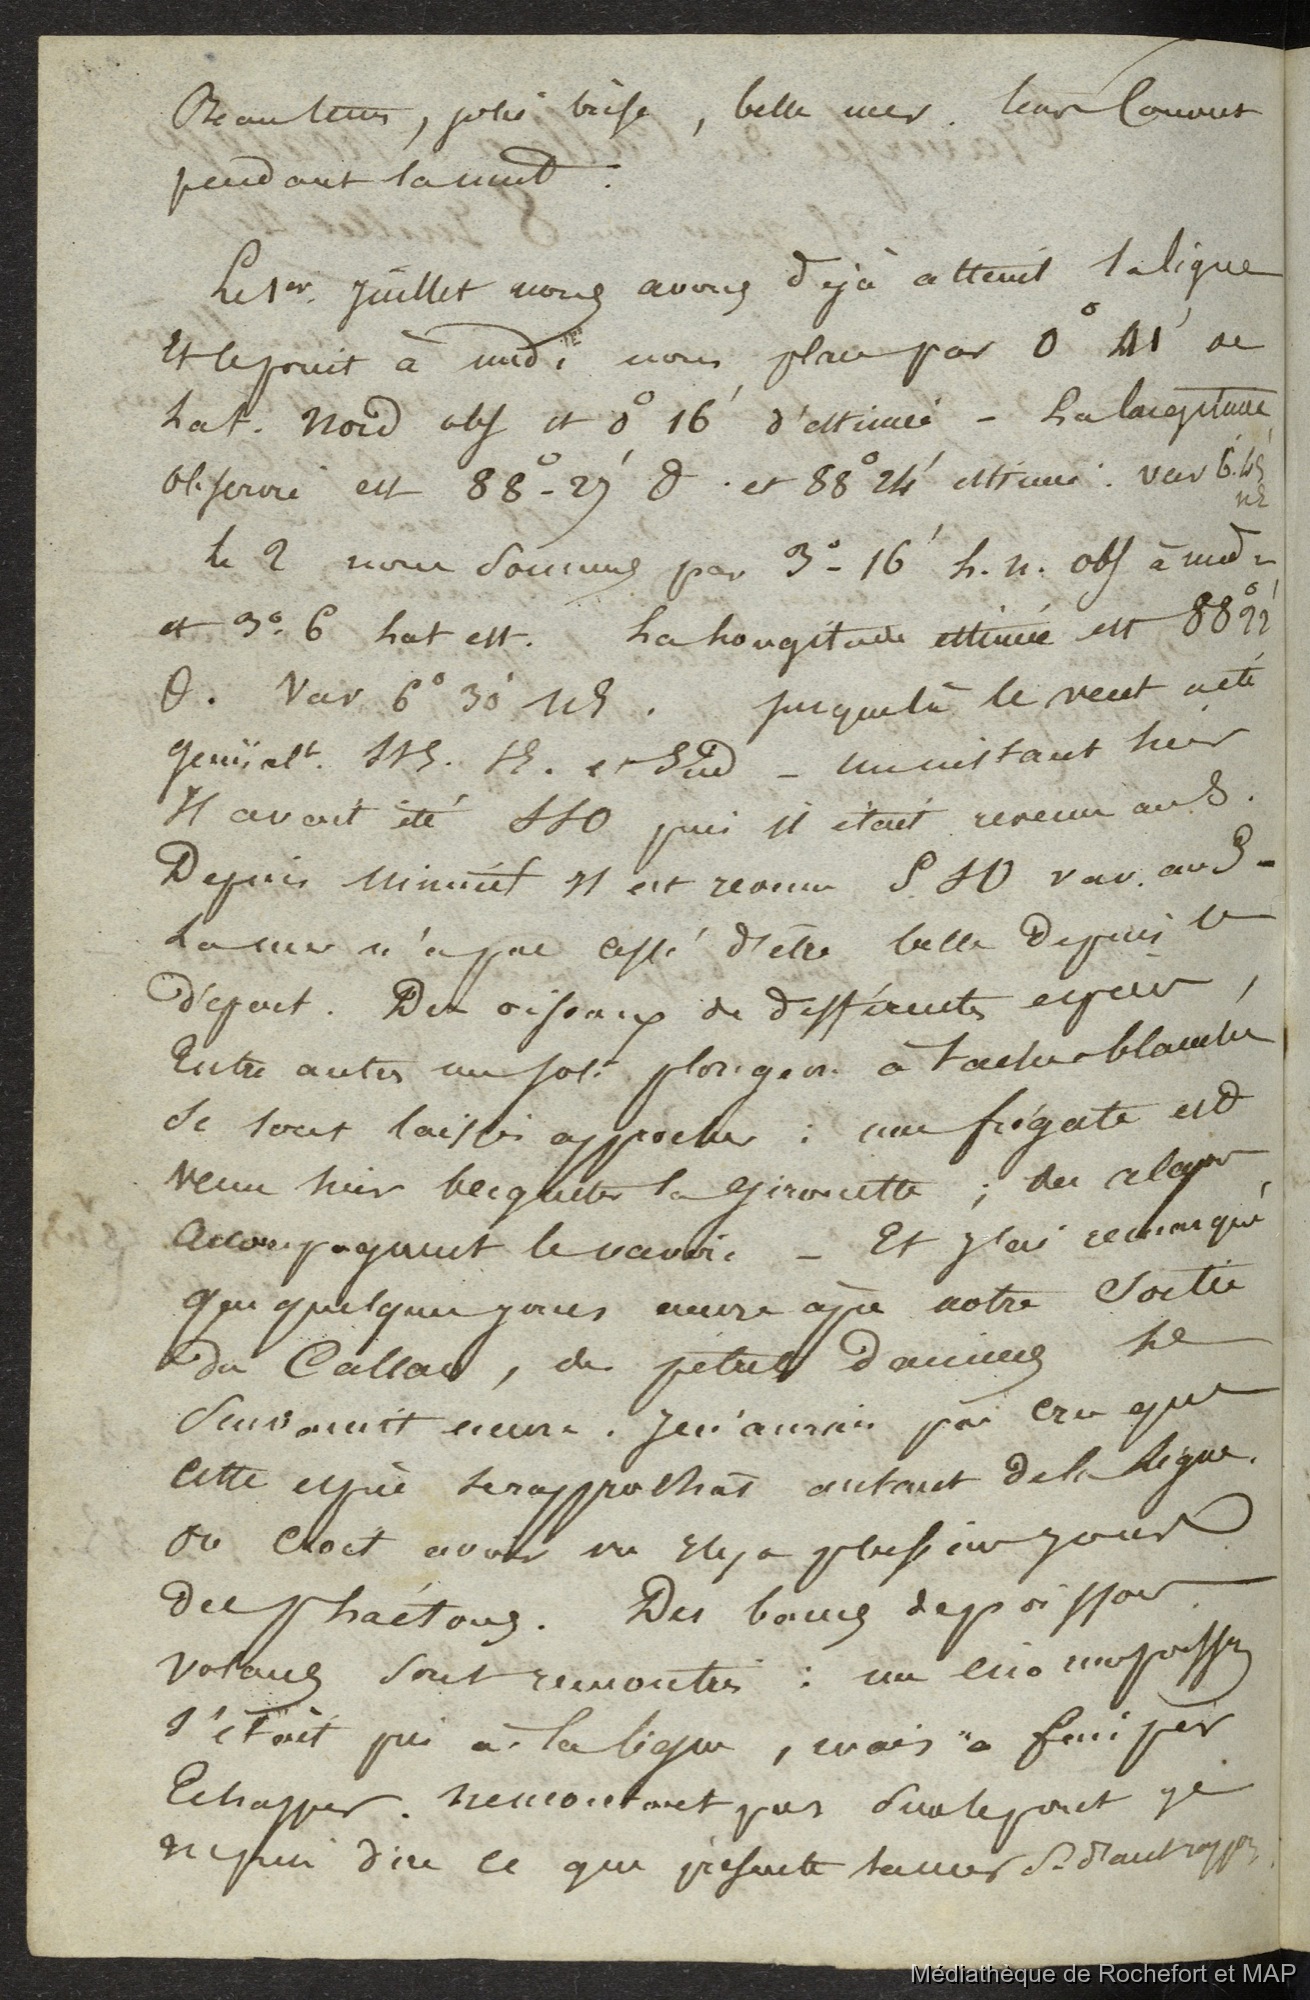 Beau tems, jolie brise, belle mer. tems Couvert
pendant la nuit.
Le 1er. Juillet nous avons dejà atteint la ligne
Et le point à midi nous place par 0° 41' de
Lat. Nord obs et 0° 16' d'estimée - La longitude
observée est 88° - 27' O. et 88° 24' estimée. Var 6.45
NE
Le 2 nous sommes par 3° - 16' L. N. obs à midi
et 3° 6 Lat est. La Longitude estimée est 88° 22'
O. Var 6° 30' NE. Jusque là le vent a été
généralt. SSE. SE. et Sud - un instant hier
Il avait été SSO puis il était revenu au S.
Depuis Minuit Il est revenu S SO var. au S -
La mer n'a pas cessé d'être belle depuis le
départ. Des oiseaux de différentes espèces,
Entre autres un joli plongeon à tache blanche
se sont laissés approcher : une frégate est
venu hier becqueter la girouette ; des
accompagnent le navire - Et j'ai remarqué
que quelques jours encore après notre Sortie
du Callao, des pétrels damiers le
suivaient encore. Je n'aurais pas cru que
cette espèce se rapprochât autant de la ligne.
On croit avoir vu il y a plusieurs jours
des phaétons. Des bancs de poissons
volans sont rencontrés : un
s'était pris à la ligne, mais a fini par
Echapper. Ne montant pas sur le pont je
ne puis dire ce que présente la mer